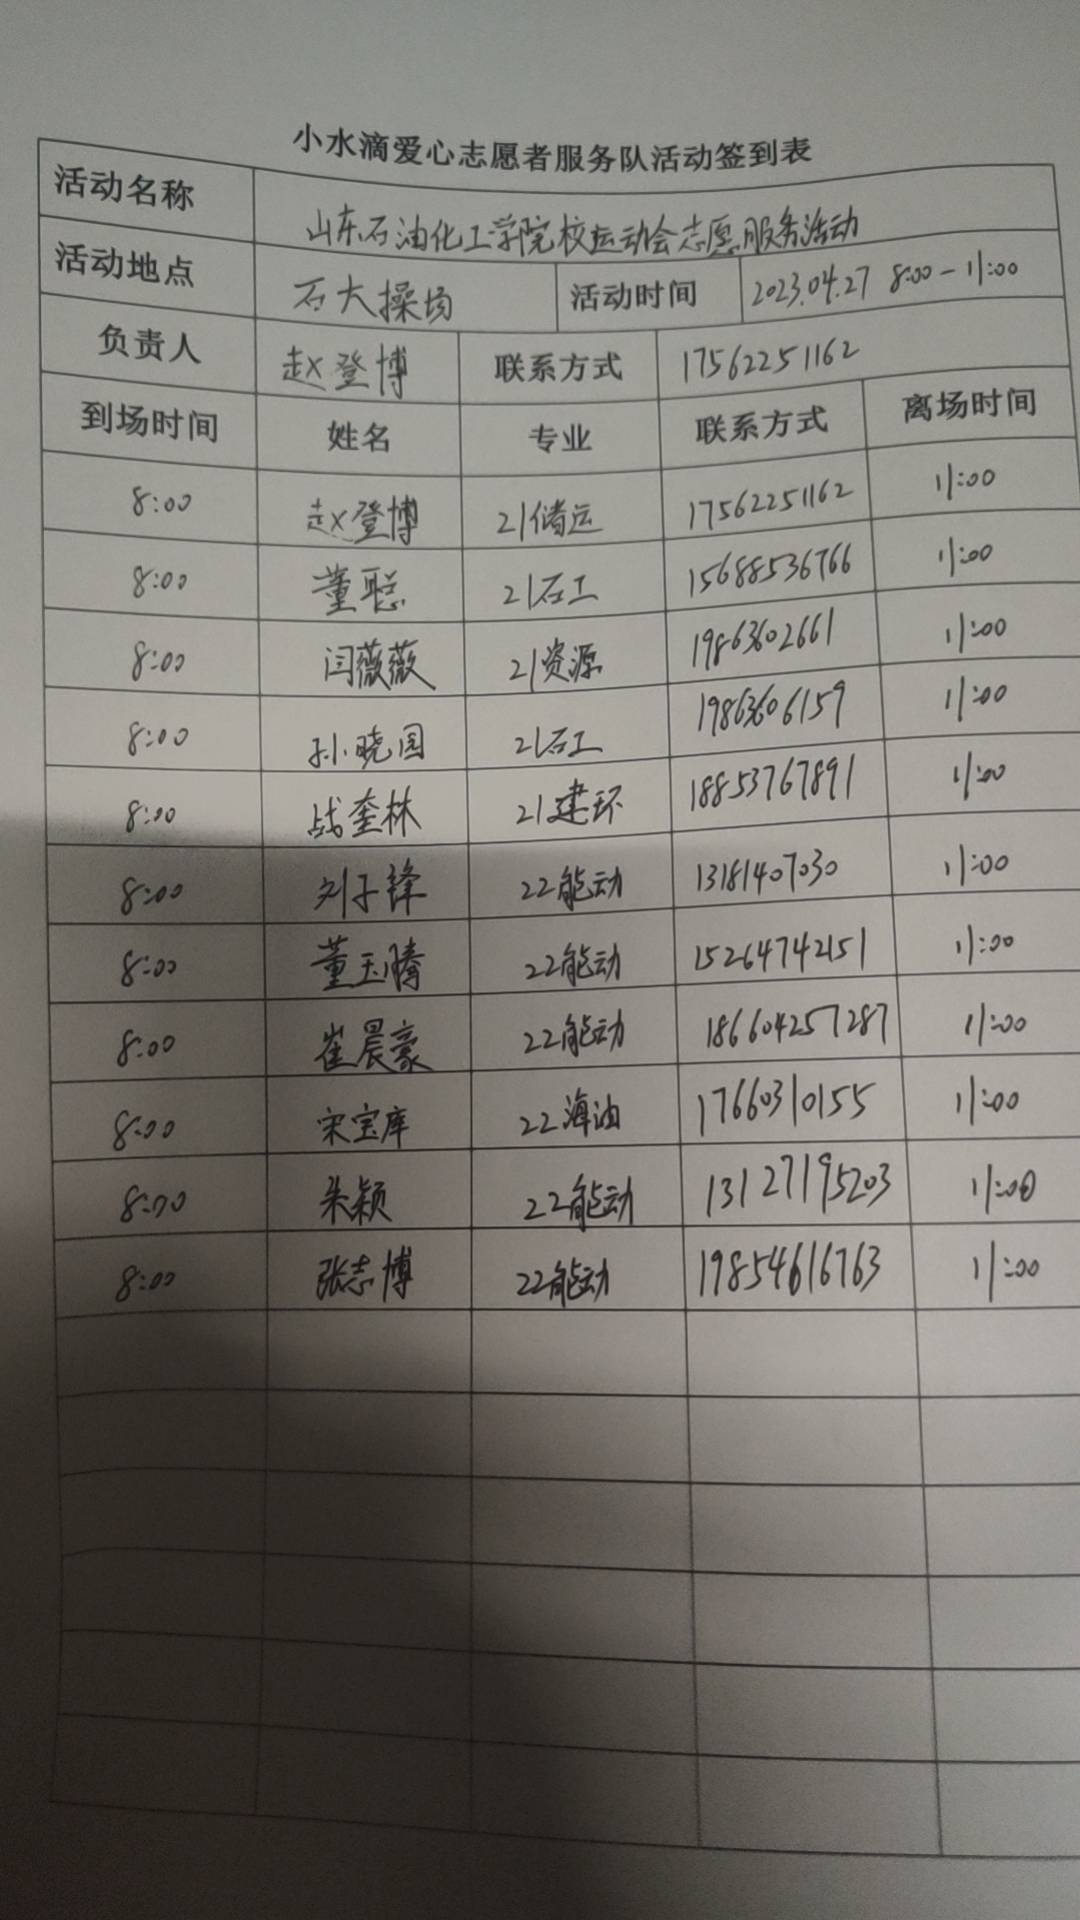 小水滴爱心志愿者服务队活动签到表
活动名称 山东石油化工学院校运动会志愿服务活动
活动地点 石大操场 活动时间 2023.04.27 8:00-11:00
负责人 赵登博 联系方式 17562251162
到场时间 姓名 专业 联系方式 离场时间
8:00 赵登博 21储运 17562251162 11:00
8:00 董聪 21石工 15688536766 11:00
8:00 闫薇薇 21资源 19863602661 11:00
8:00 孙晓园 21石工 19863606159 11:00
8:00 战奎林 21建环 18853767891 11:00
8:00 刘子锋 22能动 13181407030 11:00
8:00 董玉腾 22能动 15264742151 11:00
8:00 崔晨豪 22能动 186604257287 11:00
8:00 宋宝库 22海油 17660310155 11:00
8:00 朱颖 22能动 13127195203 11:00
8:00 张志博 22能动 19854616763 11:00